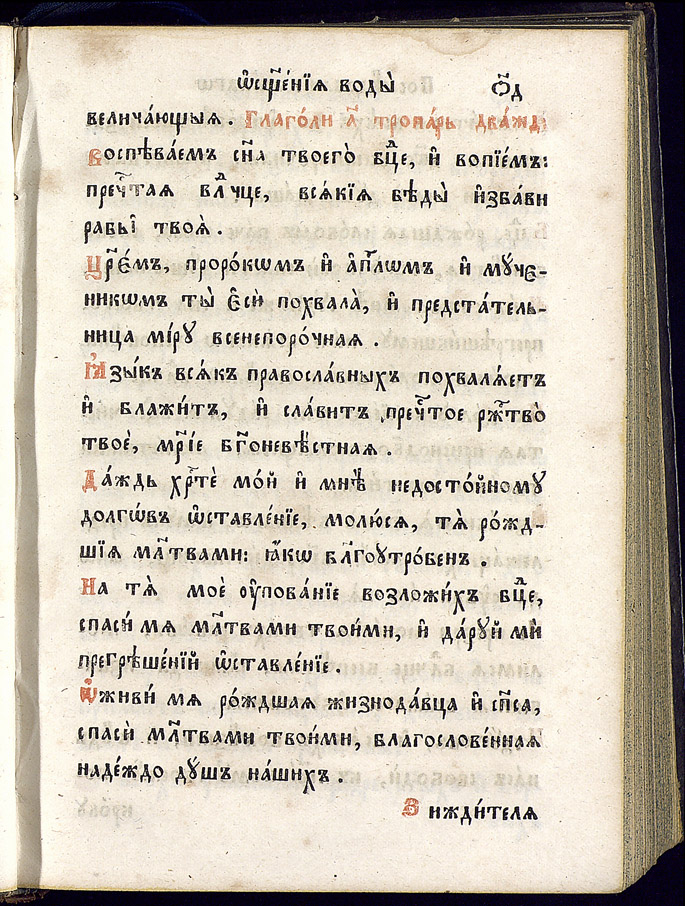 ѡ҆сщ҃е́нїѧ воды̀ ѻ҃д
велича́ющыѧ. Глаго́ли л҃ тропа́рь два́жд:
Воспѣва́емъ сн҃а твоего̀ бц҃е, и҆ вопїе́мъ:
преч҃таѧ вл҃чце, всѧ́кїѧ бѣды̀ и҆зба́ви
рабы̑ твоѧ̀.
Цр҃є́мъ, проро́кѡмъ и҆ а҆п҃лѡмъ, и҆ мꙋче-
никѡмъ ты̀ є҆сѝ похвала̀, и҆ предста́тель-
ница мі́рꙋ всенепоро́чнаѧ.
Ꙗ҆зы́къ всѧ́къ правосла́вныхъ похвалѧ́етъ
и҆ блажи́тъ, и҆ сла́витъ преч҃тое рж҃тво̀
твоѐ, мр҃і́е бг҃оневѣ́стнаѧ.
Да́ждь хрⷭ҇тѐ мо́й и҆ мнѣ̀ недосто́йномꙋ
долгѡ́въ ѡ҆ставле́нїе, молю́сѧ, тѧ̀ ро́жд-
шїѧ мл҃твами: ꙗ҆́кѡ бл҃гоꙋтро́бенъ.
На тѧ̀ моѐ ᲂу҆пова́нїе возложи́хъ бц҃е,
спасѝ мѧ мл҃твами твои́ми, и҆ да́рꙋй мѝ
прегрѣше́нїй ѡ҆ставле́нїе.
Ѡ҆живи́ мѧ ро́ждшаѧ жизнода́вца и҆ сп҃са,
спасѝ мл҃твами твои́ми, благослове́ннаѧ
наде́ждо дꙋ́шъ на́шихъ.
Зижди́телѧ